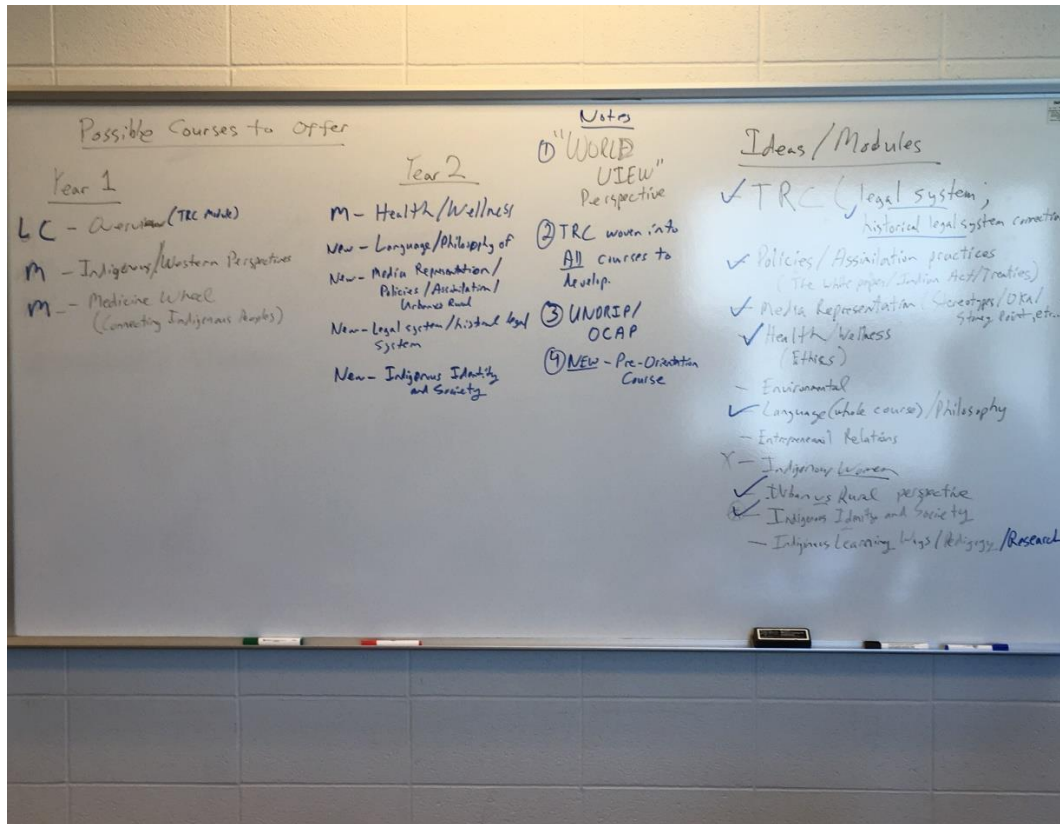 Possible Courses to Offer
Year 1
LC - Overview (TRC Module)
M - Indigenous/Western Perspectives
M - Medicine Wheel
(Connecting Indigenous Peoples)
Year 2
M - Health/Wellness
New - Language/Philosophy of
New - Media Representation/
Policies/Assimilation/
Urban vs Rural
New - Legal system/historical legal
system
New - Indigenous Identity
and Society
Notes
① "WORLD
VIEW"
Perspective
② TRC woven into
All courses to
develop.
③ UNDRIP/
OCAP
④ NEW - Pre-Orientation
Course
Ideas/Modules
✓ TRC (legal system;
✓ historical legal system connection
✓ Policies/Assimilation practices
(The white paper/Indian Act/Treaties)
✓ Media Representation (Stereotypes/OKA/
Stoney Point, etc...
✓ Health/Wellness
(Ethics)
- Environmental
✓ Language (whole course)/Philosophy
- Relations
X - Indigenous Women
✓ Urban vs Rural perspective
✓ Indigenous Idnity and Society
- Indigenous Learning Ways/Pedigogy/Research